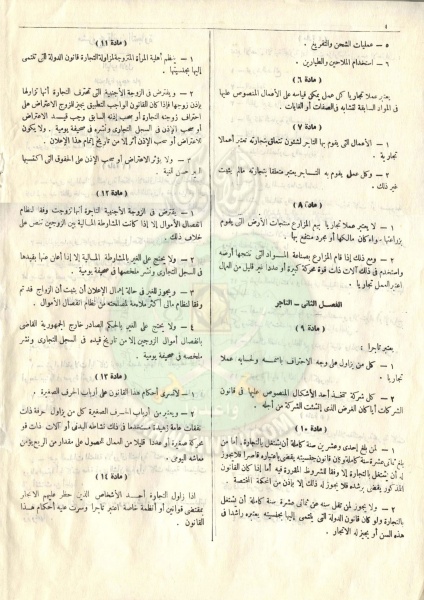 ٤
٥ — عمليات الشحن والتفريغ .
٦ — استخدام الملاحين والطيارين .
( مادة ٦ )
يعتبر عملا تجاريا كل عمل يمكن قياسه على الأعمال المنصوص عليها
فى المواد السابقة لتشابه فى الصفات أو الغايات .
( مادة ٧ )
١ — الأعمال التى يقوم بها التاجر لشئون تتعلق بتجارته تعتبر أعمالا
تجارية .
٢ — وكل عمل يقوم به التاجر يعتبر متعلقا بتجارته مالم يثبت
غير ذلك .
( مادة ٨ )
١ — لا يعتبر عملا تجاريا بيع المزارع منتجات الأرض التى يقوم
بزراعتها ، سواء كان مالكها أو مجرد منتفع بها .
٢ — ومع ذلك إذا قام المزارع بصناعة المواد التى تنتجها أرضه
واستخدم فى ذلك آلات ذات قوة محركة كبيرة أو عددا غير قليل من العمال
اعتبر العمل تجاريا .
الفصل الثانى — التاجر
( مادة ٩ )
يعتبر تاجرا :
١ — كل من يزاول على وجه الاحتراف باسمه ولحسابه عملا
تجاريا .
٢ — كل شركة تتخذ أحد الأشكال المنصوص عليها فى قانون
الشركات أيا كان الغرض الذى أنشئت الشركة من أجله .
( مادة ١٠ )
١ — لمن بلغ إحدى وعشرين سنة كاملة أن يشتغل بالتجارة . أما من
بلغ ثمانى عشرة سنة كاملة وكان قانون جنسيته يقضى باعتباره قاصرا فلا يجوز
له أن يشتغل بالتجارة إلا وفقا للشروط المقررة فيه أما إذا كان القانون
المذكور يقضى برشده فلا يجوز له ذلك إلا بإذن من المحكمة المختصة .
٢ — ولا يجوز لمن تقل سنه على ثمانى عشرة سنة كاملة أن يشتغل
بالتجارة ولو كان قانون الدولة التى ينتمى إليها بجنسيته يعتبره راشدا فى
هذه السن أو يجيز له الاتجار .
( مادة ١١ )
١ — ينظم أهلية المرأة المتزوجة لمزاولة التجارة قانون الدولة التى تنتمى
إليها بجنسيتها .
٢ — ويفترض فى الزوجة الأجنبية التى تحترف التجارة أنها تزاولها
بإذن زوجها فإذا كان القانون الواجب التطبيق يجيز للزوج الاعتراض على
احتراف زوجته التجارة أو سحب إذنه السابق وجب قيد الاعتراض
أو سحب الإذن فى السجل التجارى ونشره فى صحيفة يومية . ولا يكون
للاعتراض أو سحب الإذن أثر إلا من تاريخ إتمام هذا الإعلان .
٣ — ولا يؤثر الاعتراض أو سحب الإذن على الحقوق التى اكتسبها
الغير حسن النية .
( مادة ١٢ )
١ — يفترض فى الزوجة الأجنبية التاجرة أنها تزوجت وفقا لنظام
انفصال الأموال إلا إذا كانت المشارطة المالية بين الزوجين تنص على
خلاف ذلك .
٢ — ولا يحتج على الغير بالمشارطة المالية إلا إذا أعلن عنها بقيدها
فى السجل التجارى ونشر ملخصها فى صحيفة يومية .
٣ — ويجوز للغير فى حالة إهمال الإعلان أن يثبت أن الزواج قد تم
وفقا لنظام مالى أكثر ملاءمة لمصلحته من نظام انفصال الأموال .
٤ — ولا يحتج على الغير بالحكم الصادر خارج الجمهورية القاضى
بانفصال أموال الزوجين إلا من تاريخ قيده فى السجل التجارى ونشر
ملخصه فى صحيفة يومية .
( مادة ١٣ )
١ — لا تسرى أحكام هذا القانون على أرباب الحرف الصغيرة .
٢ — ويعتبر من أرباب الحرف الصغيرة كل من يزاول حرفة ذات
نفقات عامة زهيدة مستخدما فى ذلك نشاطه البدنى أو آلات ذات قوة
محركة صغيرة أو عددا قليلا من العمال للحصول على مقدار من الربح يؤمن
معاشه اليومى .
( مادة ١٤ )
اذا زاول التجارة أحد الأشخاص الذين حظر عليهم الاتجار
بمقتضى قوانين أو أنظمة خاصة اعتبر تاجرا وسرت عليه أحكام هذا
القانون .